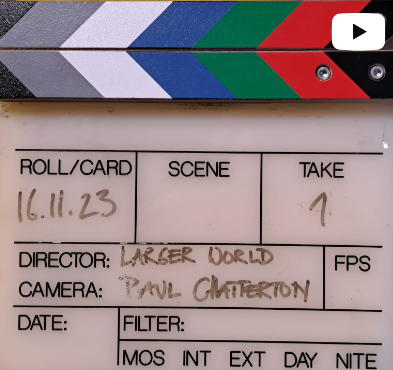 ROLL/CARD SCENE TAKE
16.11.23 1
DIRECTOR: LARGER WORLD FPS
CAMERA: PAUL CHATTERTON
DATE: FILTER:
MOS INT EXT DAY NITE